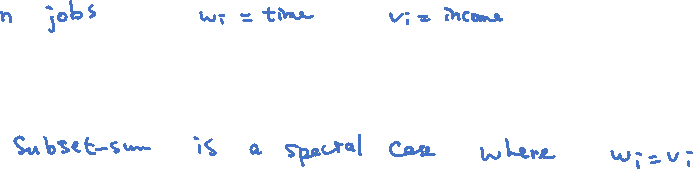 n jobs wi = time vi = income
Subset-sum is a special case where wi = vi